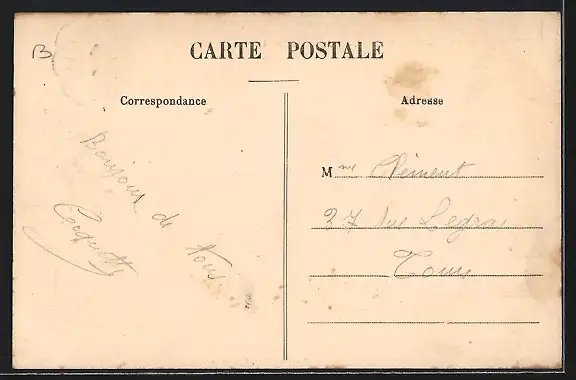 B
CARTE POSTALE
Correspondance
Adresse
Bonjour de Nous
Coquette
Mme Clément
27 Rue Legras
Tours